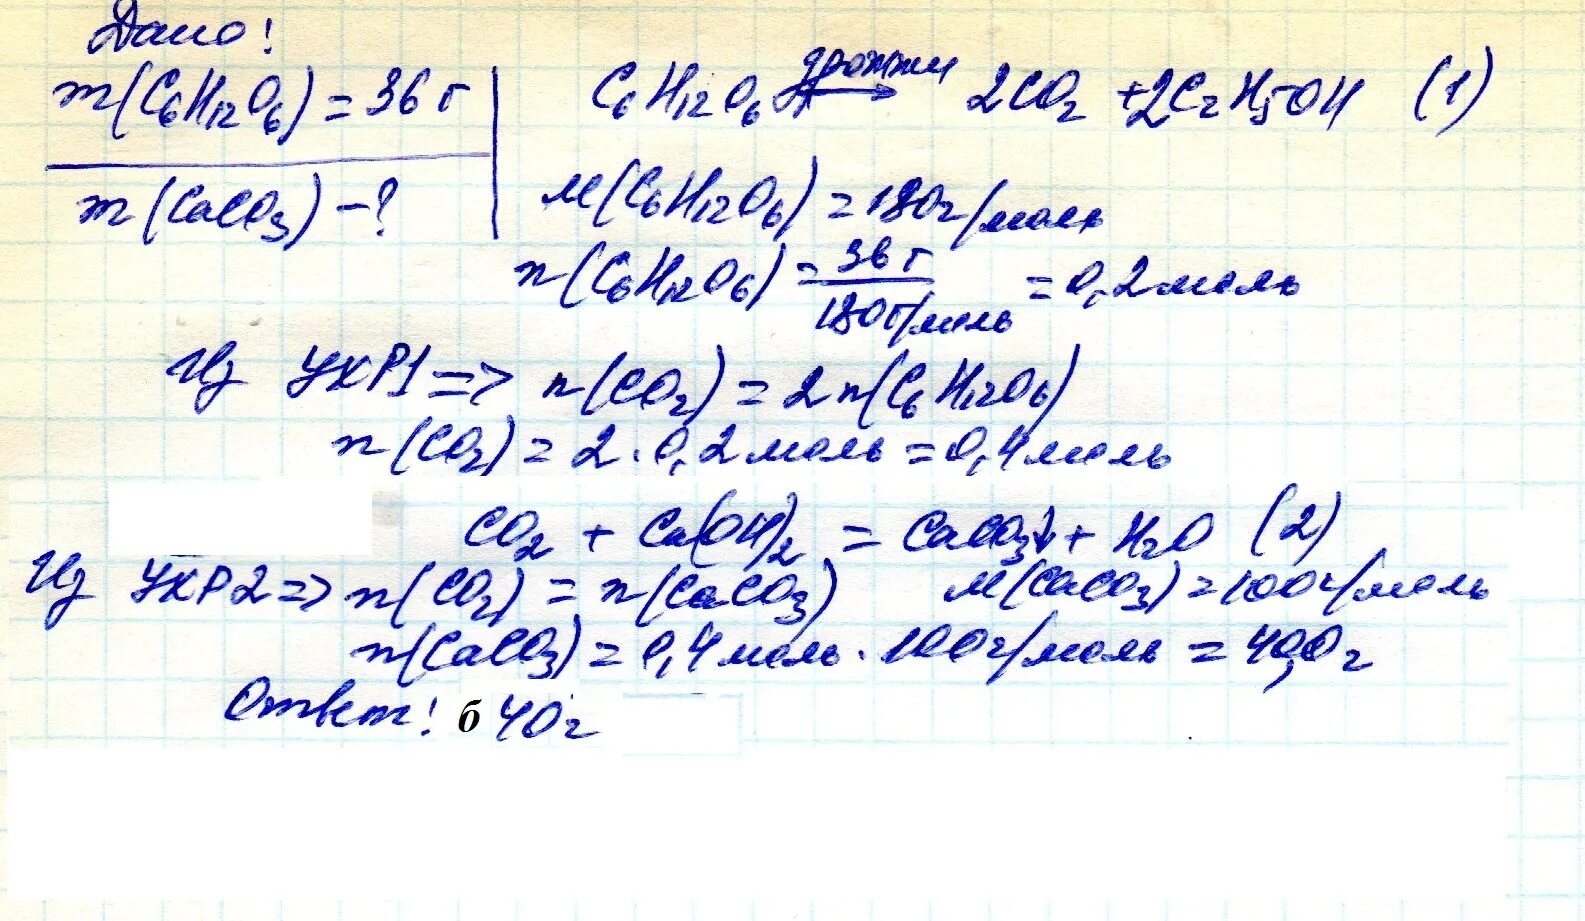 Дано!
m(C₆H₁₂O₆) = 36 г
m(CaCO₃) – ?
C₆H₁₂O₆ дрожжи → 2CO₂ + 2C₂H₅OH (1)
M(C₆H₁₂O₆) = 180 г/моль
n(C₆H₁₂O₆) = 36 г / 180 г/моль = 0,2 моль
Из УХР1 => n(CO₂) = 2n(C₆H₁₂O₆)
n(CO₂) = 2 · 0,2 моль = 0,4 моль
CO₂ + Ca(OH)₂ = CaCO₃↓ + H₂O (2)
Из УХР2 => n(CO₂) = n(CaCO₃) M(CaCO₃) = 100 г/моль
n(CaCO₃) = 0,4 моль · 100 г/моль = 40,0 г
Ответ! б 40 г